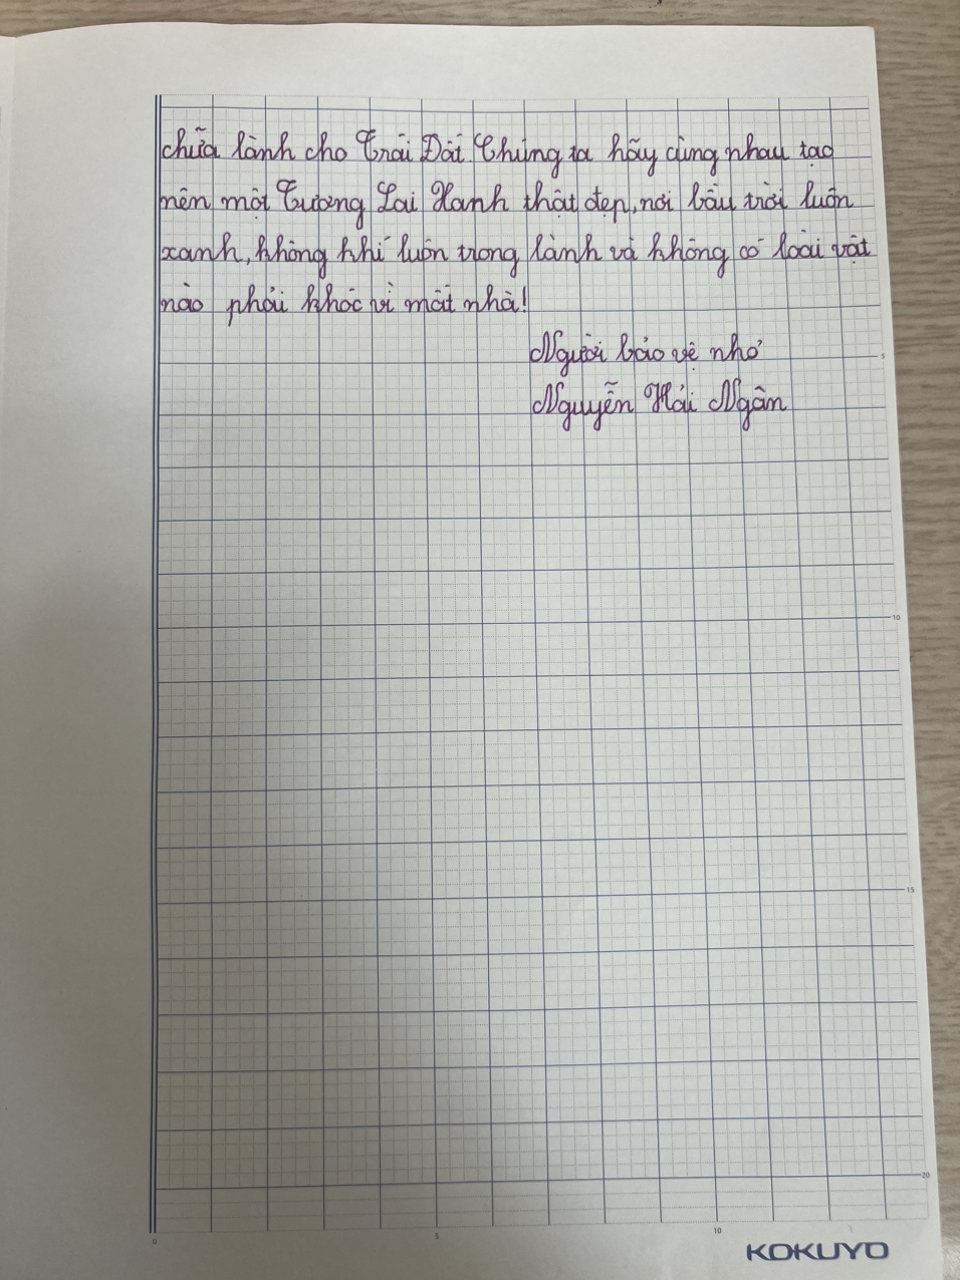 chữa lành cho Trái Đất Chúng ta hãy cùng nhau tạo
nên một Tương Lai Xanh thật đẹp, nơi bầu trời luôn
xanh, không khí luôn trong lành và không có loài vật
nào phải khóc vì mất nhà!
Người bảo vệ nhỏ
Nguyễn Hải Ngân
5
10
15
20
0 5 10
KOKUYO